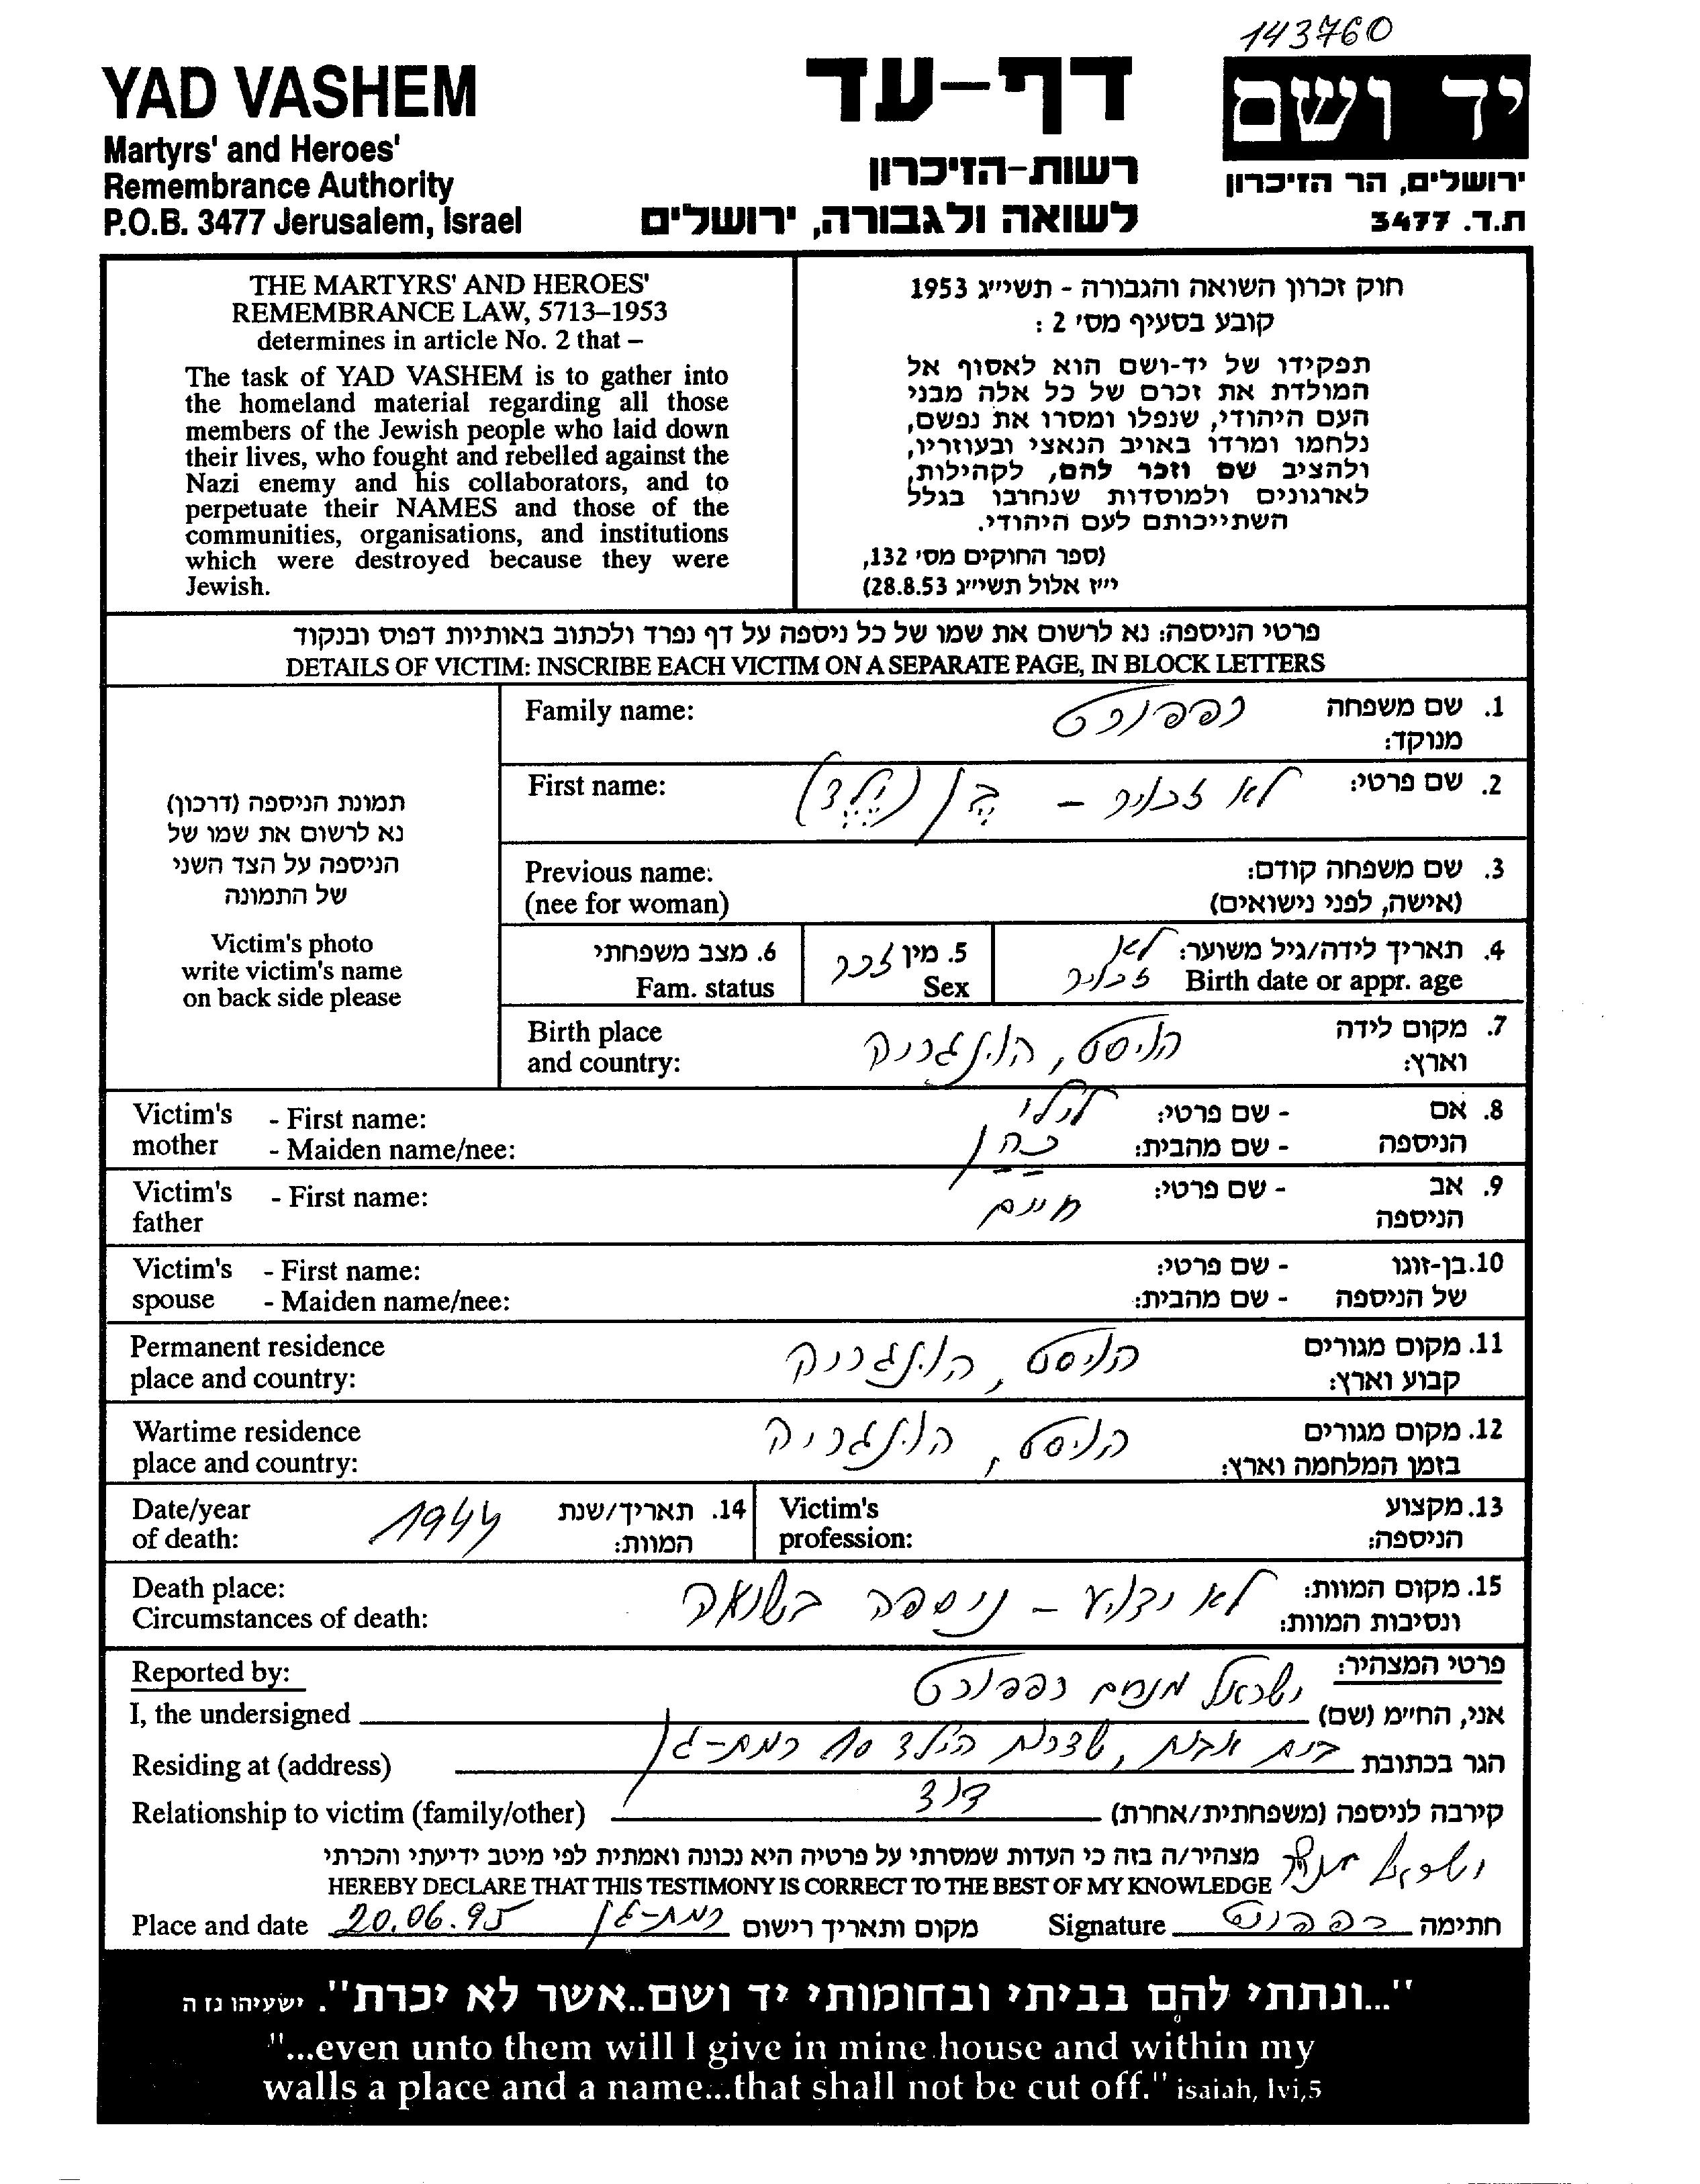 143760
YAD VASHEM
Martyrs' and Heroes'
Remembrance Authority
P.O.B. 3477 Jerusalem, Israel
דף-עד
רשות-הזיכרון
לשואה ולגבורה, ירושלים
יד ושם
ירושלים, הר הזיכרון
ת.ד. 3477
THE MARTYRS' AND HEROES'
REMEMBRANCE LAW, 5713–1953
determines in article No. 2 that –
The task of YAD VASHEM is to gather into
the homeland material regarding all those
members of the Jewish people who laid down
their lives, who fought and rebelled against the
Nazi enemy and his collaborators, and to
perpetuate their NAMES and those of the
communities, organisations, and institutions
which were destroyed because they were
Jewish.
חוק זכרון השואה והגבורה - תשי״ג 1953
קובע בסעיף מס׳ 2 :
תפקידו של יד-ושם הוא לאסוף אל
המולדת את זכרם של כל אלה מבני
העם היהודי, שנפלו ומסרו את נפשם,
נלחמו ומרדו באויב הנאצי ובעוזריו,
ולהציב שם וזכר להם, לקהילות,
לארגונים ולמוסדות שנחרבו בגלל
השתייכותם לעם היהודי.
(ספר החוקים מס׳ 132,
י״ז אלול תשי״ג 28.8.53)
פרטי הניספה: נא לרשום את שמו של כל ניספה על דף נפרד ולכתוב באותיות דפוס ובנקוד
DETAILS OF VICTIM: INSCRIBE EACH VICTIM ON A SEPARATE PAGE, IN BLOCK LETTERS
תמונת הניספה (דרכון)
נא לרשום את שמו של
הניספה על הצד השני
של התמונה
Victim's photo
write victim's name
on back side please
Family name: רפפורט 1. שם משפחה
מנוקד:
First name: לא זכור - בֵּן (יֶלֶד) 2. שם פרטי:
Previous name: 3. שם משפחה קודם:
(nee for woman) (אישה, לפני נישואים)
6. מצב משפחתי 5. מין זכר 4. תאריך לידה/גיל משוער: לא
Fam. status Sex Birth date or appr. age זכור
Birth place 7. מקום לידה
and country: הוסט, הונגריה וארץ:
Victim's - First name: לילי - שם פרטי: 8. אם
mother - Maiden name/nee: כַּהַן - שם מהבית: הניספה
Victim's - First name: חיים - שם פרטי: 9. אב
father הניספה
Victim's - First name: - שם פרטי: 10. בן-זוגו
spouse - Maiden name/nee: - שם מהבית: של הניספה
Permanent residence הוסט, הונגריה 11. מקום מגורים
place and country: קבוע וארץ:
Wartime residence הוסט, הונגריה 12. מקום מגורים
place and country: בזמן המלחמה וארץ:
Date/year 1944 14. תאריך/שנת Victim's 13. מקצוע
of death: המוות: profession: הניספה:
Death place: לא ידוע - ניספה בשואה 15. מקום המוות:
Circumstances of death: ונסיבות המוות:
Reported by: ישראל מנחם רפפורט פרטי המצהיר:
I, the undersigned אני, החי״מ (שם)
Residing at (address) בית אבות, שדרות הילד 10 רמת-גן הגר בכתובת
Relationship to victim (family/other) דוד קירבה לניספה (משפחתית/אחרת)
מצהיר/ה בזה כי העדות שמסרתי על פרטיה היא נכונה ואמתית לפי מיטב ידיעתי והכרתי
HEREBY DECLARE THAT THIS TESTIMONY IS CORRECT TO THE BEST OF MY KNOWLEDGE ישראל מנחם
Place and date 20.06.95 רמת-גן מקום ותאריך רישום Signature רפפורט חתימה
"...ונתתי להם בביתי ובחומותי יד ושם..אשר לא יכרת". ישעיהו נז ה
"...even unto them will I give in mine house and within my
walls a place and a name...that shall not be cut off." isaiah, lvi,5